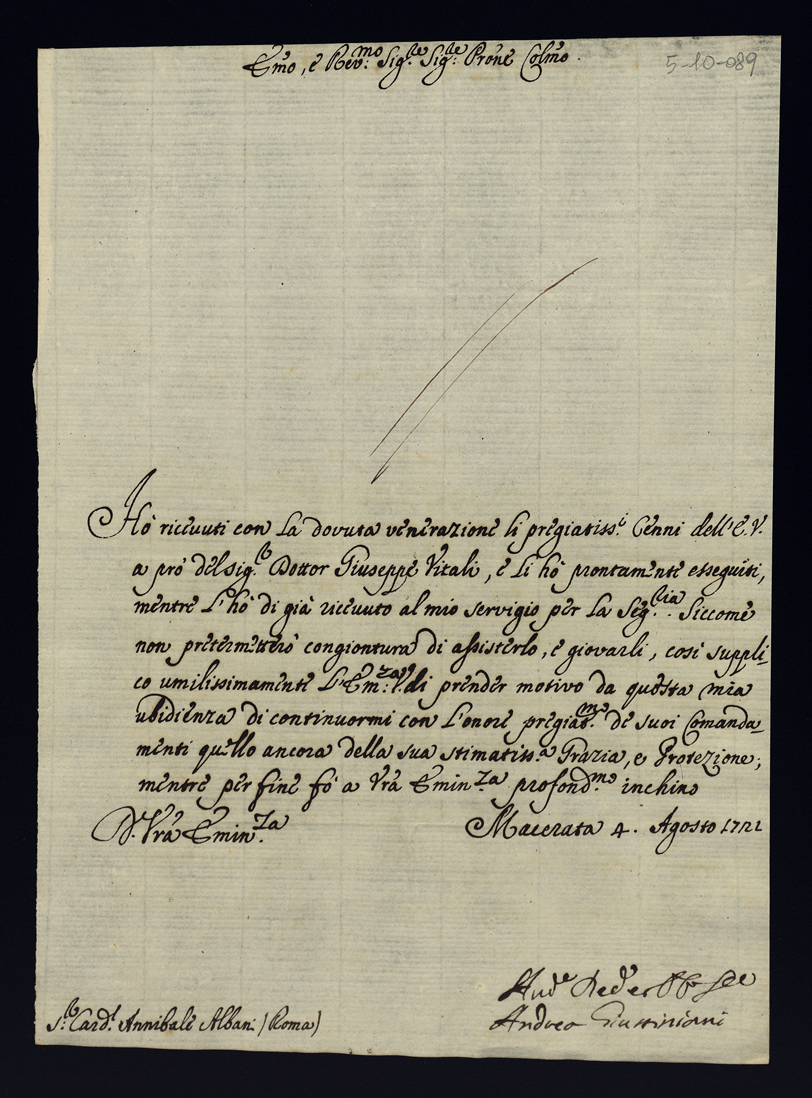 Em̃o, e Rev.mo Sig.re Sig.re Prõne Colm̃o.
5-10-089
Hò riceuuti con la dovuta venerazione li pregiatiss.i Cenni dell'E.V.
a prò del Sig.r Dottor Giuseppe Vitali, e li hò prontam.nte esseguiti,
mentre l'hò di già riceuuto al mio servigio per la Seg.ria. Siccome
non pretermetterò congiontura di assisterlo, e giovarli, così suppli-
co umilissimamente l'Em.za V. di prender motivo da questa mia
ubidienza di continuarmi con l'onore pregiat.mo de suoi Comanda-
menti quello ancora della sua stimatiss.a Grazia, e Protezione;
mentre per fine fò a Vr̃a Emin.za profond.mo inchino
D. Vr̃a Emin.za
Macerata 4. Agosto 1721
S.r Card.l Annibale Albani (Roma)
Andrea Giustiniani